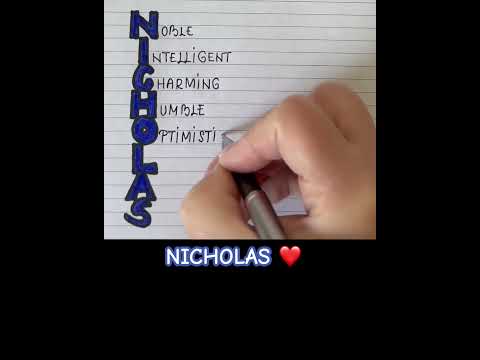 NOBLE
INTELLIGENT
CHARMING
HUMBLE
OPTIMISTI
L
A
S
NICHOLAS ❤️